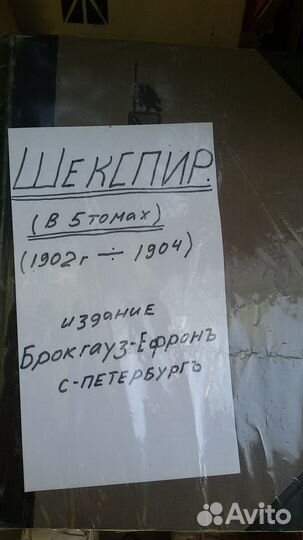 ШЕКСПИР.
(В 5 томах)
(1902г ÷ 1904)
издание
Брокгауз-Ефронъ
С-ПЕТЕРБУРГЪ
Avito